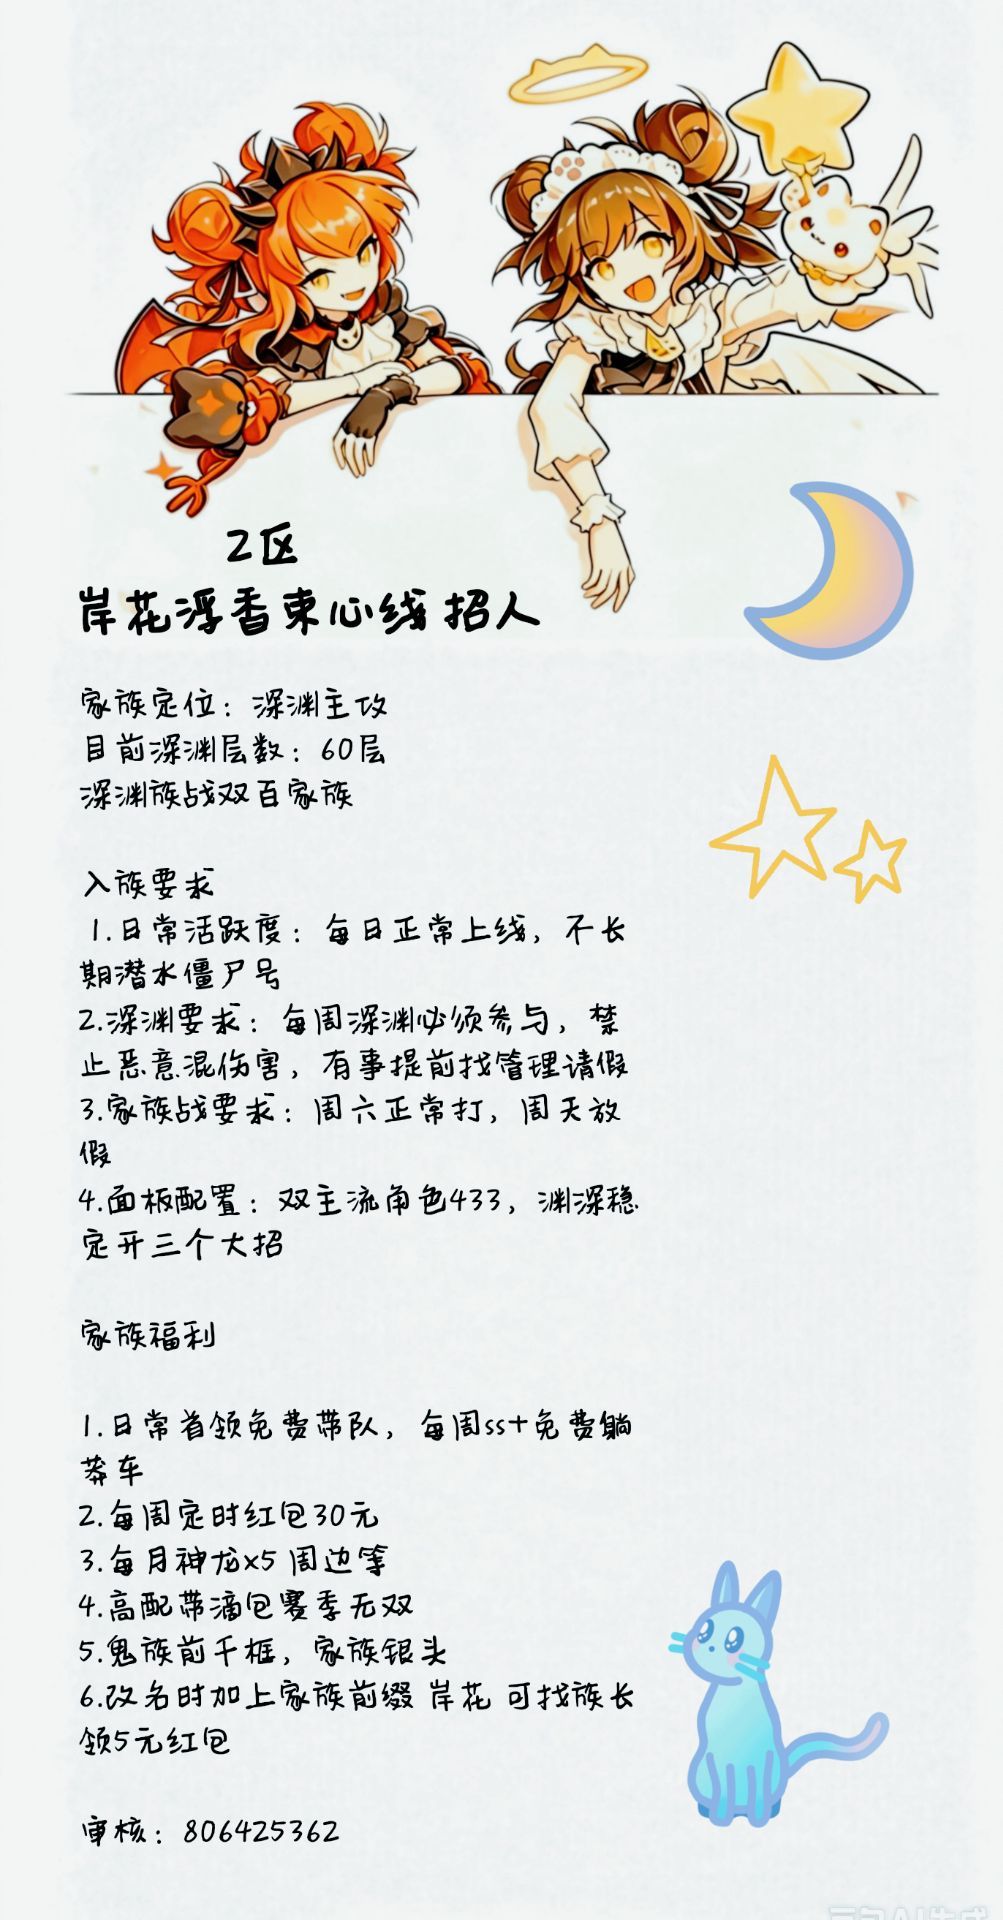 2区
岸花浮香束心线招人
家族定位：深渊主攻
目前深渊层数：60层
深渊族战双百家族
入族要求
1.日常活跃度：每日正常上线，不长
期潜水僵尸号
2.深渊要求：每周深渊必须参与，禁
止恶意混伤害，有事提前找管理请假
3.家族战要求：周六正常打，周天放
假
4.面板配置：双主流角色433，渊深稳
定开三个大招
家族福利
1.日常首领免费带队，每周ss+免费躺
莽车
2.每周定时红包30元
3.每月神龙x5 周边等
4.高配带滴包赛季无双
5.鬼族前千框，家族银头
6.改名时加上家族前缀 岸花 可找族长
领5元红包
审核：806425362